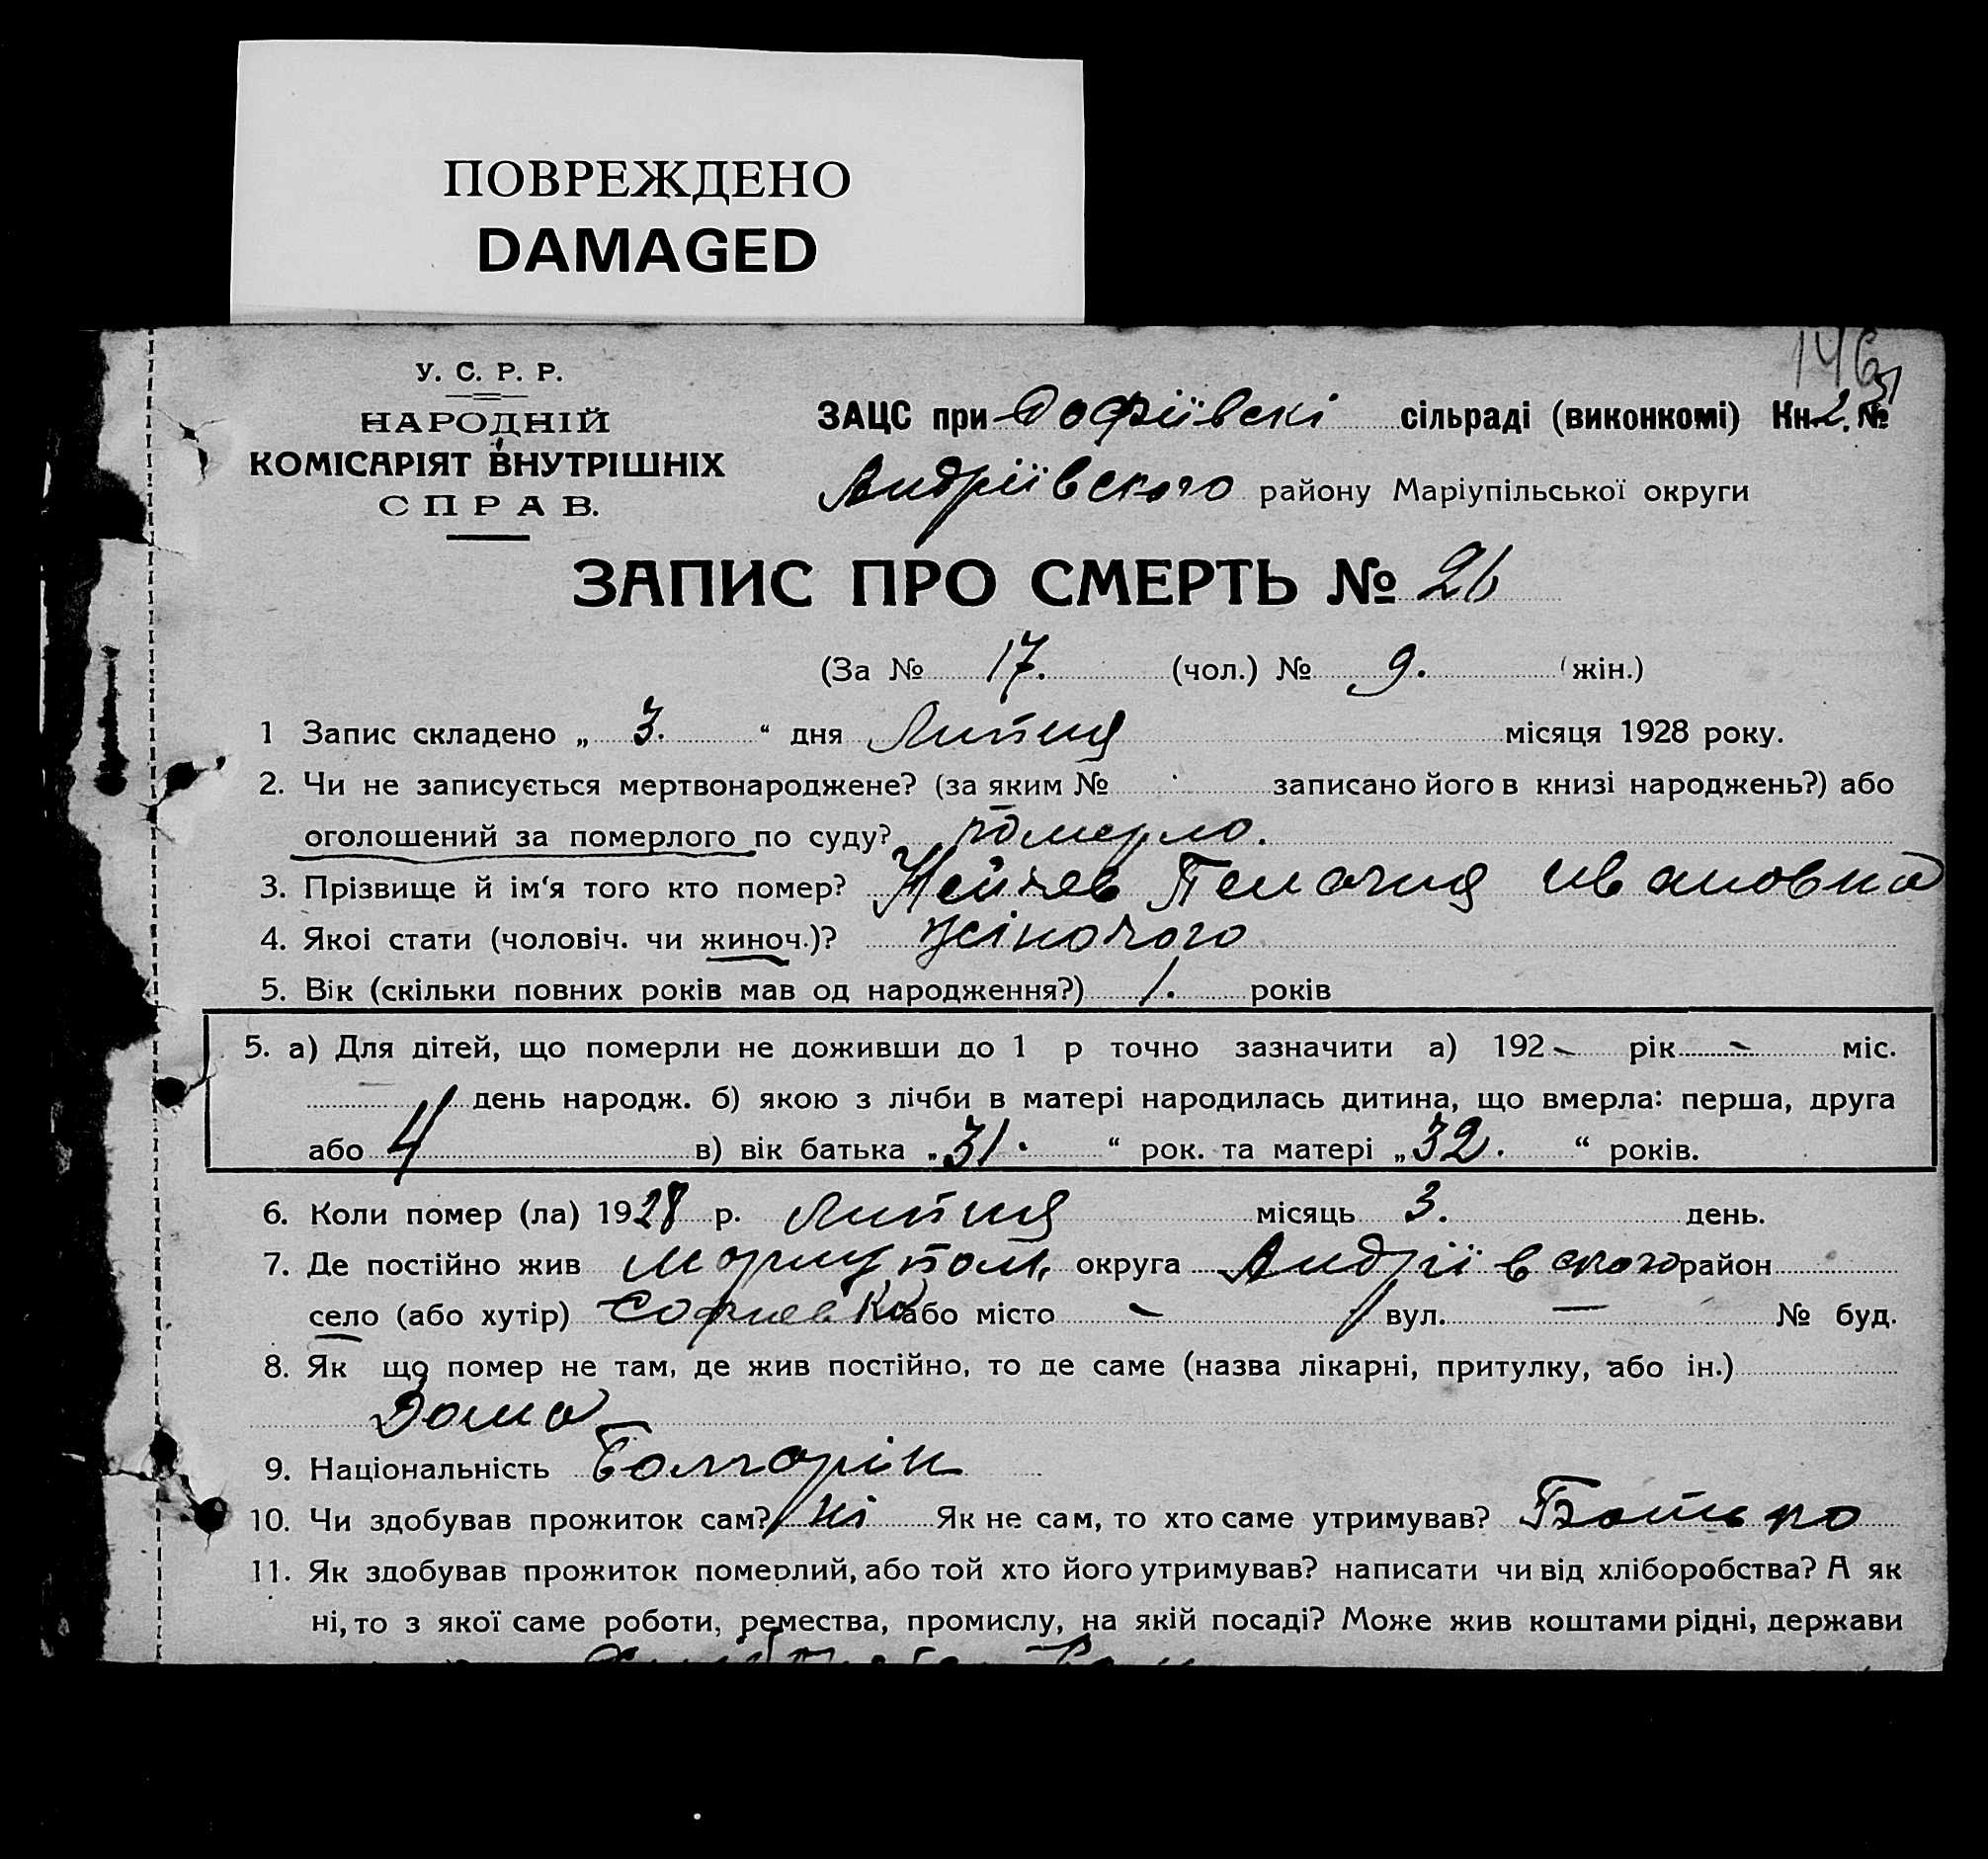 ПОВРЕЖДЕНО
DAMAGED
146
У. С. Р. Р.
НАРОДНІЙ
КОМІСАРІЯТ ВНУТРІШНІХ
СПРАВ.
ЗАЦС при Софіївскі сільраді (виконкомі) Кн. 2. №
Андріївского району Маріупільської округи
ЗАПИС ПРО СМЕРТЬ № 26
(За № 17. (чол.) № 9. (жін.)
1 Запис складено „ 3. “ дня Липня місяця 1928 року.
2. Чи не записується мертвонароджене? (за яким № записано його в книзі народжень?) або
оголошений за померлого по суду? померло.
3. Прізвище й ім‘я того кто помер? Пелагия Ивановна
4. Якоі стати (чоловіч. чи жиноч.)? жіночого
5. Вік (скільки повних років мав од народження?) 1. років
5. а) Для дітей, що померли не доживши до 1 р точно зазначити а) 192 - рік - міс.
день народж. б) якою з лічби в матері народилась дитина, що вмерла: перша, друга
або 4 в) вік батька „ 31. “ рок. та матері „ 32. “ років.
6. Коли помер (ла) 1928 р. Липня місяць 3. день.
7. Де постійно жив Мариупол. округа Андріївского район
село (або хутір) Софиевка або місто - вул. — № буд.
8. Як що помер не там, де жив постійно, то де саме (назва лікарні, притулку, або ін.)
Дома
9. Національність Болгарін
10. Чи здобував прожиток сам? ні Як не сам, то хто саме утримував? Батько
11. Як здобував прожиток померлий, або той хто його утримував? написати чи від хліборобства? А як
ні, то з якої саме роботи, ремества, промислу, на якій посаді? Може жив коштами рідні, держави